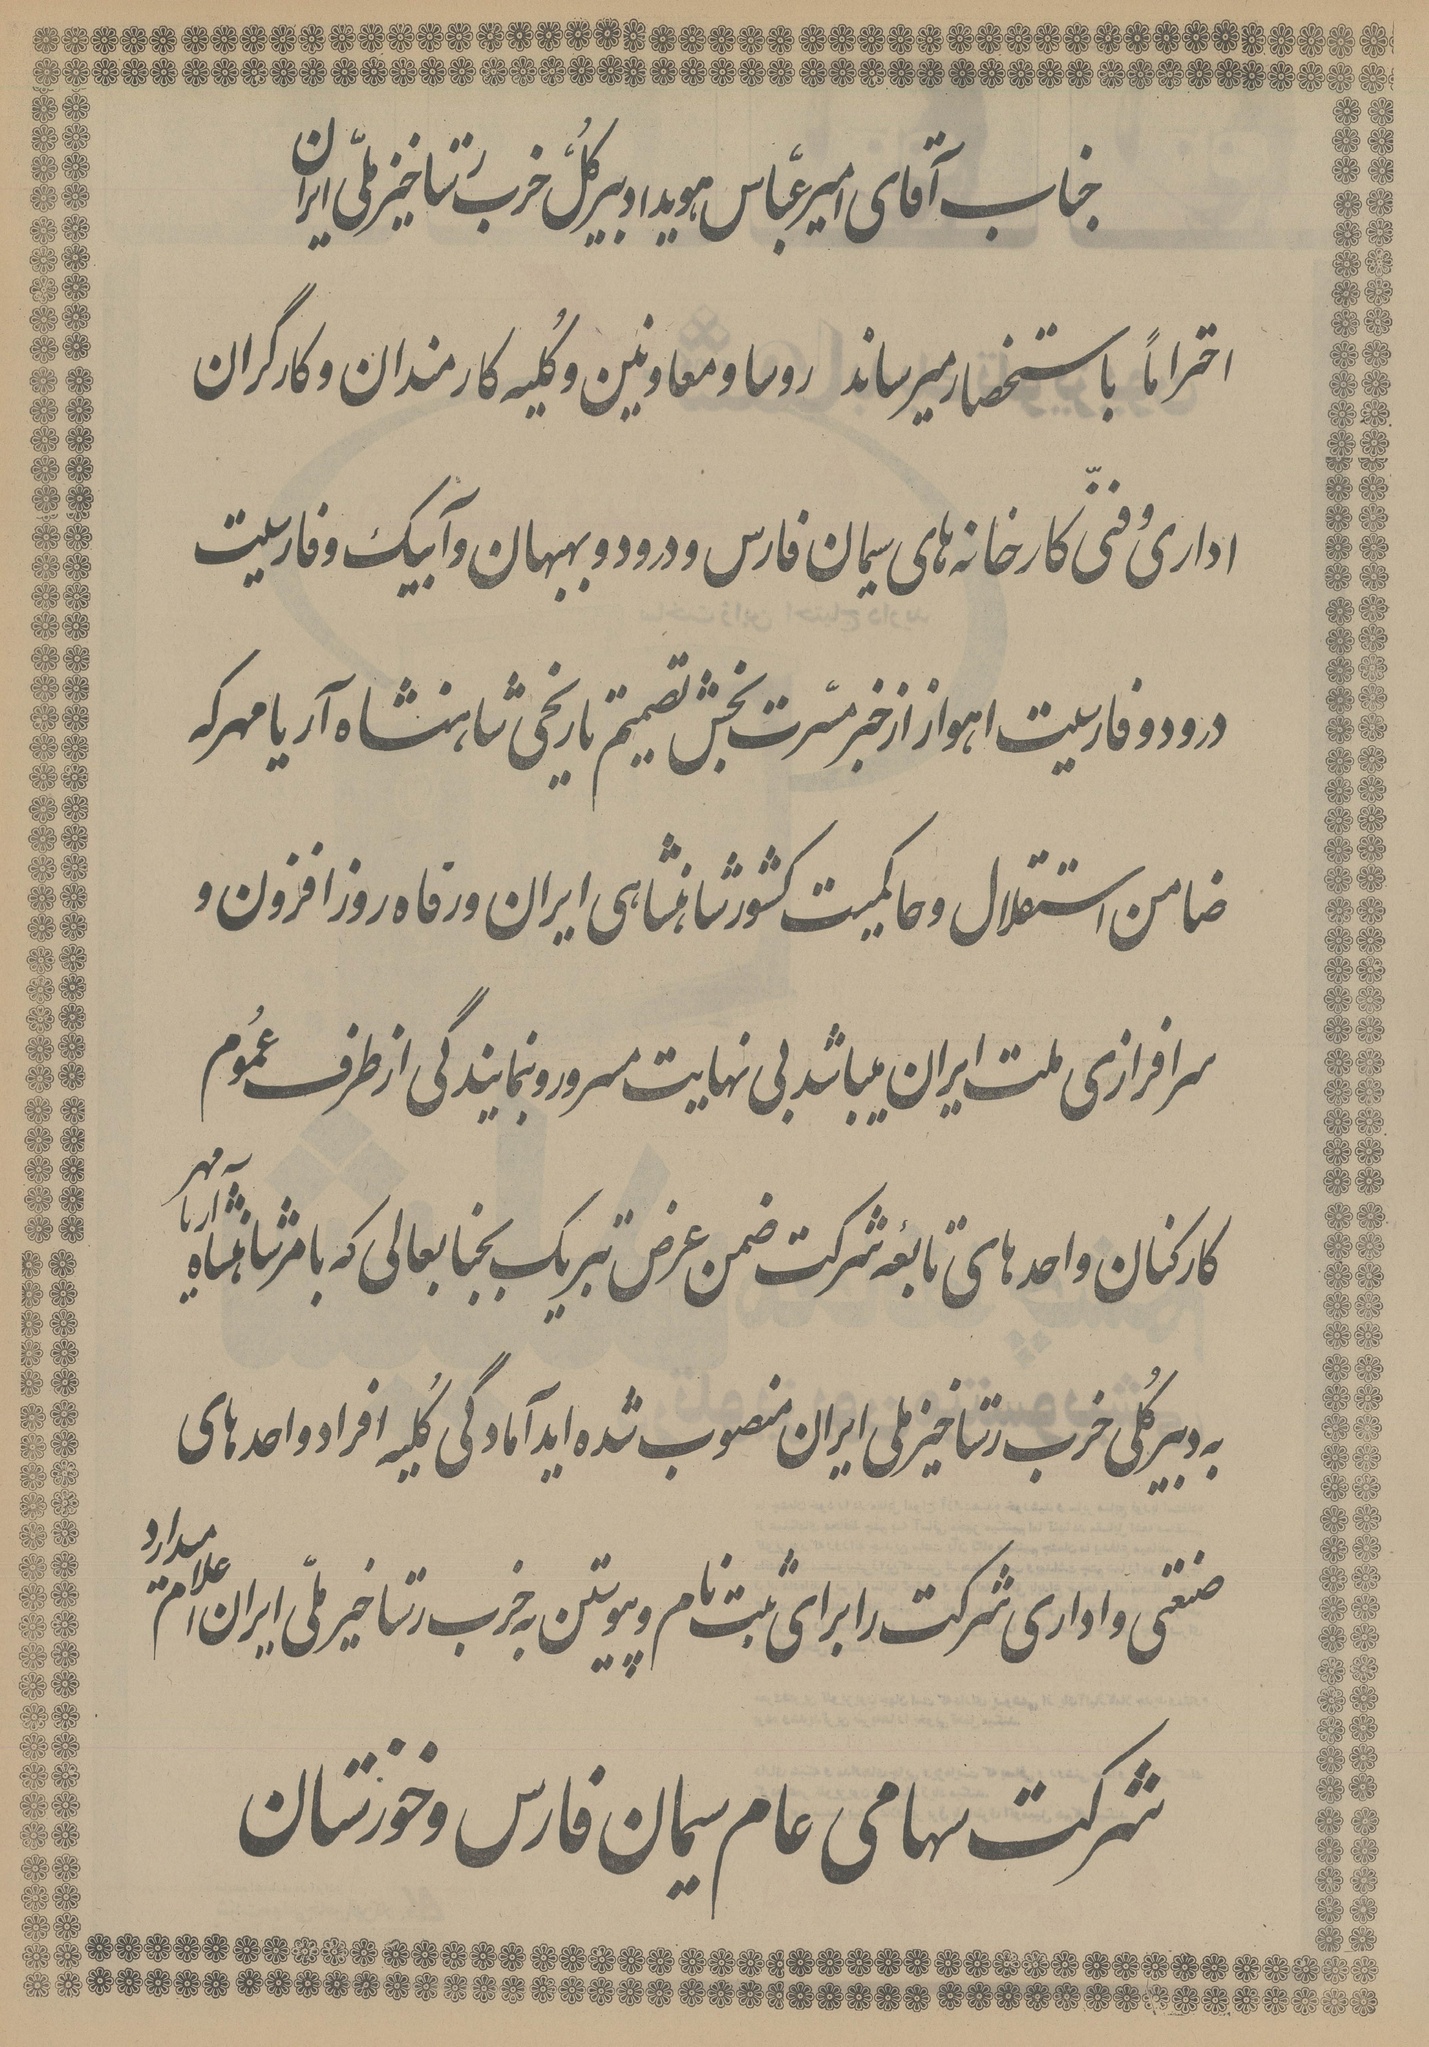 جناب آقای امیرعباس هویدا دبیرکلّ حزب رستاخیز ملّی ایران
احتراماً باستحضار میرساند روسا و معاونین و کلیه کارمندان و کارگران
اداری و فنّی کارخانه های سیمان فارس و درود و بهبهان و آبیک و فارسیت
درود و فارسیت اهواز از خبر مسّرت بخش تصمیم تاریخی شاهنشاه آریامهر که
ضامن استقلال و حاکمیت کشور شاهنشاهی ایران و رفاه روزافزون و
سرافرازی ملت ایران میباشد بی نهایت مسرور و بنمایندگی از طرف عموم
کارکنان واحدهای تابعه شرکت ضمن عرض تبریک بجنابعالی که بامر شاهنشاه آریامهر
به دبیرکلی حزب رستاخیز ملی ایران منصوب شده اید آمادگی کلیه افراد واحدهای
صنعتی و اداری شرکت را برای ثبت نام و پیوستن به حزب رستاخیز ملّی ایران اعلام میدارد
شرکت سهامی عام سیمان فارس و خوزستان